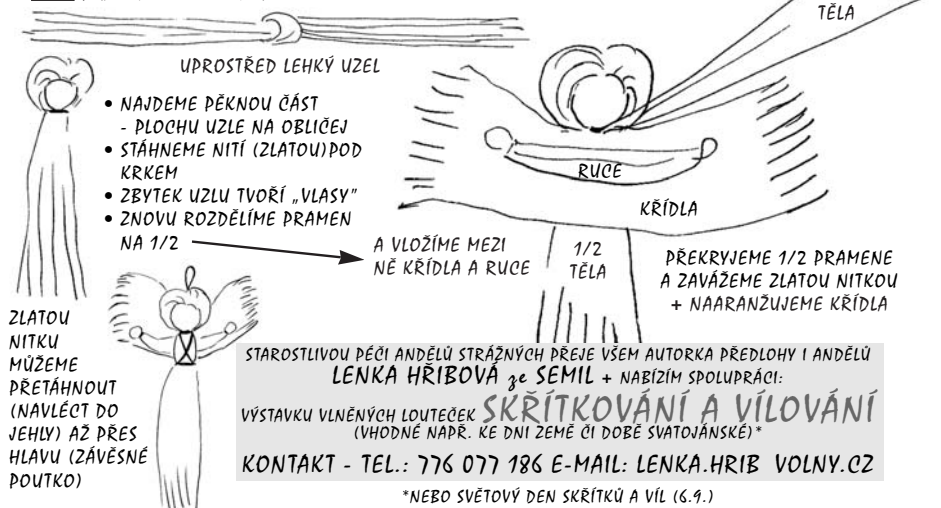 TĚLA
UPROSTŘED LEHKÝ UZEL
• NAJDEME PĚKNOU ČÁST
- PLOCHU UZLE NA OBLIČEJ
• STÁHNEME NITÍ (ZLATOU)POD
KRKEM
• ZBYTEK UZLU TVOŘÍ „VLASY"
• ZNOVU ROZDĚLÍME PRAMEN
NA 1/2
A VLOŽÍME MEZI
NĚ KŘÍDLA A RUCE
RUCE
KŘÍDLA
1/2
TĚLA
PŘEKRYJEME 1/2 PRAMENE
A ZAVÁŽEME ZLATOU NITKOU
+ NAARANŽUJEME KŘÍDLA
ZLATOU
NITKU
MŮŽEME
PŘETÁHNOUT
(NAVLÉCT DO
JEHLY) AŽ PŘES
HLAVU (ZÁVĚSNÉ
POUTKO)
STAROSTLIVOU PÉČI ANDĚLŮ STRÁŽNÝCH PŘEJE VŠEM AUTORKA PŘEDLOHY I ANDĚLŮ
LENKA HŘIBOVÁ ze SEMIL + NABÍZÍM SPOLUPRÁCI:
VÝSTAVKU VLNĚNÝCH LOUTEČEK SKŘÍTKOVÁNÍ A VÍLOVÁNÍ
(VHODNÉ NAPŘ. KE DNI ZEMĚ ČI DOBĚ SVATOJÁNSKÉ)*
KONTAKT - TEL.: 776 077 186 E-MAIL: LENKA.HRIB VOLNY.CZ
*NEBO SVĚTOVÝ DEN SKŘÍTKŮ A VÍL (6.9.)